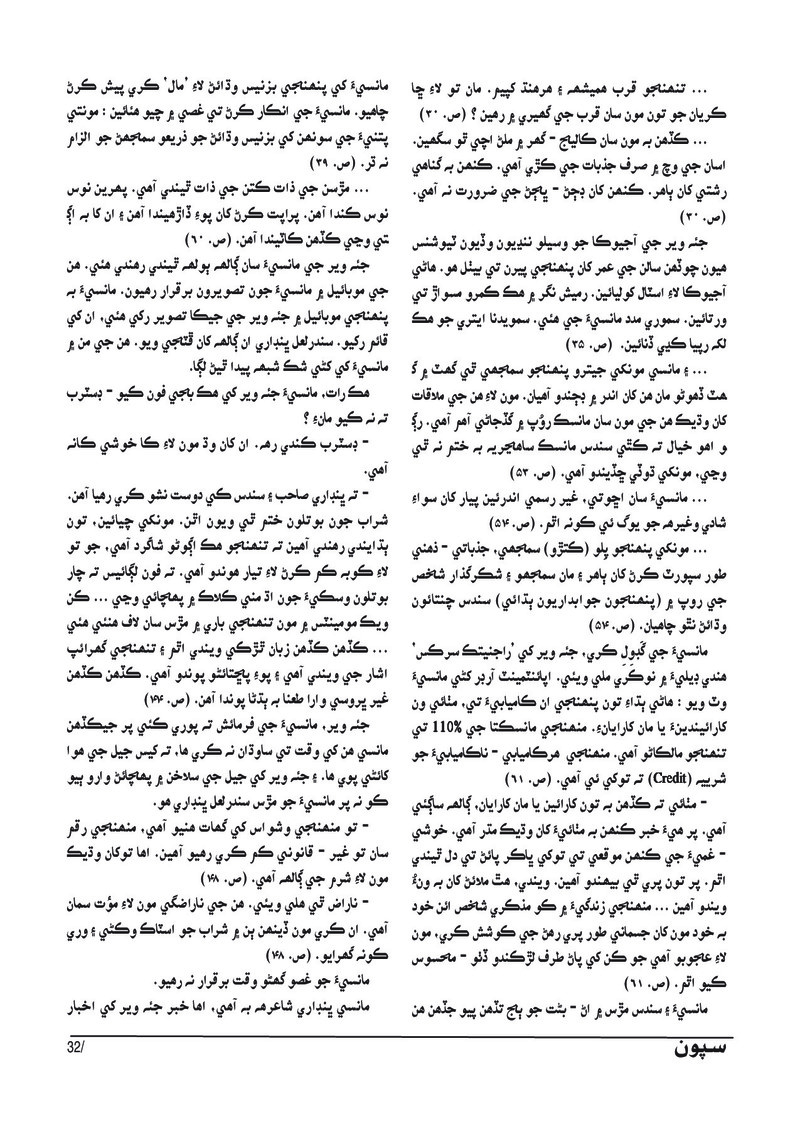 ... تنهنجو قرب هميشهه ۽ هرهنڌ کپيم. مان تو لاءِ ڇا
ڪريان جو تون مون سان قرب جي گهيري ۾ رهين ؟ (ص. ۳۰)
... ڪڏهن به مون سان ڪاليج - گهر ۾ ملڻ اچي ٿو سگهين.
اسان جي وچ ۾ صرف جذبات جي ڪڙي آهي. ڪنهن به گناهي
رشتي کان ٻاهر. ڪنهن کان ڊڄڻ - ڀڄڻ جي ضرورت نه آهي.
(ص. ۳۰)
جئه وير جي آجيوڪا جو وسيلو ننڍيون وڏيون ٽيوشنس
هيون چوڏهن سالن جي عمر کان پنهنجي پيرن تي بيٺل هو. هاڻي
آجيوڪا لاءِ اسٽال کوليائين. رميش نگر ۾ هڪ ڪمرو مسواڙ تي
ورتائين. سموري مدد مانسيءَ جي هئي. سمويدنا ايتري جو هڪ
لک رپيا ڪڍي ڏنائين. (ص. ۳۵)
... ۽ مانسي مونکي جيترو پنهنجو سمجهي ٿي گهٽ ۾ گ
هٽ ڏهوڻو مان هن کان اندر ۾ ڊڄندو آهيان. مون لاءِ هن جي ملاقات
کان وڌيڪ هن جي مون سان مانسڪ روُپ ۾ گڏجاڻي آهر آهي. رڳ
و اهو خيال ته ڪٿي سندس مانسڪ ساهچريه به ختم نه ٿي
وڃي، مونکي ڌوڏي ڇڏيندو آهي. (ص. ۵۳)
... مانسيءَ سان اڇوتي، غير رسمي اندرئين پيار کان سواءِ
شادي وغيرهه جو يوگ ئي کونه اٿم. (ص. ۵۴)
... مونکي پنهنجو پِلو (ڪتڙو) سمجهي، جذباتي - ذهني
طور سپورٽ ڪرڻ کان ٻاهر ۽ مان سمجهو ۽ شڪرگذار شاخص
جي روپ ۾ (پنهنجون جوابداريون ٻڌائي) سندس چنتائون
وڌائڻ نٿو چاهيان. (ص. ۵۴)
مانسيءَ جي گبول ڪري، جئه وير کي 'راجنيتڪ سرڪس'
هندي ڊيليءَ ۾ نوڪري ملي ويئي. اپائنٽمينٽ آرڊر کڻي مانسيءَ
وٽ ويو : هاڻي ٻڌاءِ تون پنهنجي ان ڪاميابيءَ تي، مٺائي ون
کارائيندينءَ يا مان کارايانءِ. منهنجي مانسڪتا جي %110 تي
تنهنجو مالڪاڻو آهي. منهنجي هرڪاميابي - ناڪاميابيءَ جو
شرييه (Credit) ته توکي ئي آهي. (ص. ۶۱)
- مٺائي ته ڪڏهن به تون کارائين يا مان کارايان، ڳالهه ساڳئي
آهي. پر هيءَ خبر ڪنهن به مٺائيءَ کان وڌيڪ مٿر آهي. خوشي
- غميءَ جي ڪنهن موقعي تي توکي ڀاڪر پائڻ تي دل ٿيندي
اٿم. پر تون پري ٿي بيهندو آهين. ويندي، هٿ ملائڻ کان به وِنءُ
ويندو آهين ... منهنجي زندگيءَ ۾ ڪو مذڪري شاخص ائن خود
به خود مون کان جسماني طور پري رهڻ جي ڪوشش ڪري، مون
لاءِ عجوبو آهي جو ڪن کي پاڻ طرف لڙڪندو ڏٺو - محسوس
ڪيو اٿم. (ص. ۶۱)
مانسيءَ ۽ سندس مڙس ۾ اڻ - بڻت جو ٻج تڏهن پيو جڏهن هن
مانسيءَ کي پنهنجي بزنيس وڌائڻ لاءِ 'مال' ڪري پيش ڪرڻ
چاهيو. مانسيءَ جي انڪار ڪرڻ تي غصي ۾ چيو هئائين : مونتي
پتنيءَ جي سونهن کي بزنيس وڌائڻ جو ذريعو سماجهڻ جو الزام
نه ڌر. (ص. ۳۹)
... مڙسن جي ذات ڪتن جي ذات ٿيندي آهي. پهرين نوس
نوس ڪندا آهن. پراپت ڪرڻ کان پوءِ ڏاڙهيندا آهن ۽ ان کا به اڳ
تي وڃي ڪڏهن ڪاٽيندا آهن. (ص. ۶۰)
جئه وير جي مانسيءَ سان ڳالهه ٻولهه ٿيندي رهندي هئي. هن
جي موبائيل ۾ مانسيءَ جون تصويرون برقرار رهيون. مانسيءَ به
پنهنجي موبائيل ۾ جئه وير جي جيڪا تصوير رکي هئي، ان کي
قائم رکيو. سندرلعل ڀنڊاري ان ڳالهه کان ڦٽجي ويو. هن جي من ۾
مانسيءَ کي کڻي شڪ شبهه پيدا ٿيڻ لڳا.
هڪ رات، مانسيءَ جئه وير کي هڪ بجي فون ڪيو - ڊسٽرب
ته نه ڪيو مانءِ ؟
- ڊسٽرب ڪندي رهه. ان کان وڌ مون لاءِ ڪا خوشي کانه
آهي.
- ته ڀنڊاري صاحب ۽ سندس ڪي دوست نشو ڪري رهيا آهن.
شراب جون بوتلون ختم ٿي ويون اٿن. مونکي چيائين، تون
ٻڌايندي رهندي آهين ته تنهنجو هڪ اڳوڻو شاگرد آهي، جو تو
لاءِ ڪوبه ڪم ڪرڻ لاءِ تيار هوندو آهي. ته فون لڳائيس ته چار
بوتلون وسڪيءَ جون اڌ مني ڪلاڪ ۾ پهچائي وڃي ... ڪن
ويڪ مومينٽس ۾ مون تنهنجي باري ۾ مڙس سان لاف هنئي هئي
... ڪڏهن ڪڏهن زبان ٿڙڪي ويندي اٿم ۽ تنهنجي گهرائپ
اشار جي ويندي آهي ۽ پوءِ پڇتائڻو پوندو آهي. ڪڏهن ڪڏهن
غير ڀروسي وارا طعنا به ٻڌڻا پوندا آهن. (ص. ۱۴۴)
جئه وير، مانسيءَ جي فرمائش ته پوري ڪئي پر جيڪڏهن
مانسي هن کي وقت تي ساوڌان نه ڪري ها، ته کيس جيل جي هوا
کائڻي پوي ها. ۽ جئه وير کي جيل جي سلاخن ۾ پهچائڻ وارو ٻيو
ڪو نه پر مانسيءَ جو مڙس سندرلعل ڀنڊاري هو.
- تو منهنجي وشواس کي گهات هنيو آهي، منهنجي رقم
سان تو غير - قانوني ڪم ڪري رهيو آهين. اها توکان وڌيڪ
مون لاءِ شرم جي ڳالهه آهي. (ص. ۱۴۸)
- ناراض ٿي هلي ويئي. هن جي ناراضگي مون لاءِ موُت سمان
آهي. ان ڪري مون ڏينهن ٻن ۾ شراب جو اسٽاڪ وڪڻي ۽ وري
ڪونه گهرايو. (ص. ۱۴۸)
مانسيءَ جو غصو گهڻو وقت برقرار نه رهيو.
مانسي ڀنڊاري شاعرهه به آهي، اها خبر جئه وير کي اخبار
سپون
32/